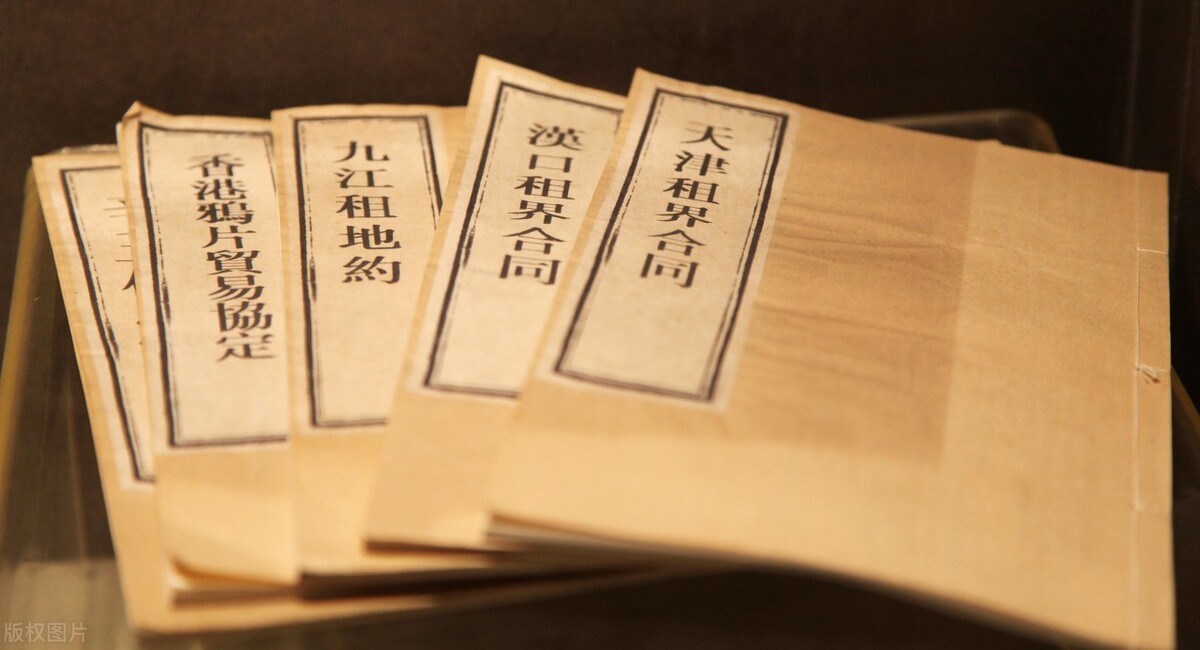 天津租界合同
漢口租界合同
九江租地約
香港鴉片貿易協定
版权图片